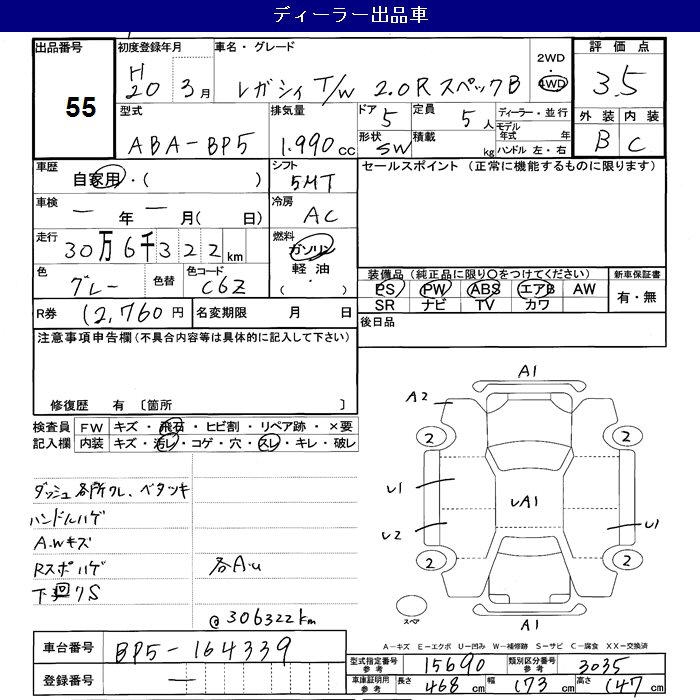 ディーラー出品車
出品番号 初度登録年月 車名・グレード 2WD・4WD 評価点
55 H20 3月 レガシィ T/W 2.0R スペックB 3.5
型式 排気量 ドア 定員 ディーラー・並行 外装 内装
ABA-BP5 1.990cc 5 5人 モデル年式 年 B C
形状 積載 ハンドル 左・右
SW kg
車歴 シフト セールスポイント (正常に機能するものに限ります)
自家用・( ) 5MT
車検 冷房
一年一月( 日) AC
走行 燃料
30万6千322km ガソリン
軽油
( ・ )
色 色替 色コード 装備品 (純正品に限り○をつけてください) 新車保証書
グレー C6Z PS PW ABS エアB AW 有・無
SR ナビ TV カワ
R券 12,760円 名変期限 月 日 後日品
注意事項申告欄 (不具合内容等は具体的に記入して下さい)
修復歴 有 〔箇所 〕
検査員 FW キズ・飛石・ヒビ割・リペア跡・×要
記入欄 内装 キズ・汚レ・コゲ・穴・スレ・キレ・破レ
ダッシュ各所ワレ、ベタツキ
ハンドルハゲ
A.Wキズ
Rスポハゲ 各A.u
下回りS
@306322km
A1
A2
2 2
U1
UA1
U2 U1
2 2
スペア
A1
A-キズ E-エクボ U-凹み W-補修跡 S-サビ C-腐食 XX-交換済
車台番号 BP5-164339
型式指定番号 参考 15690 類別区分番号 参考 3035
登録番号 一
車庫証明用 参考 長さ 468cm 幅 173cm 高さ 147cm